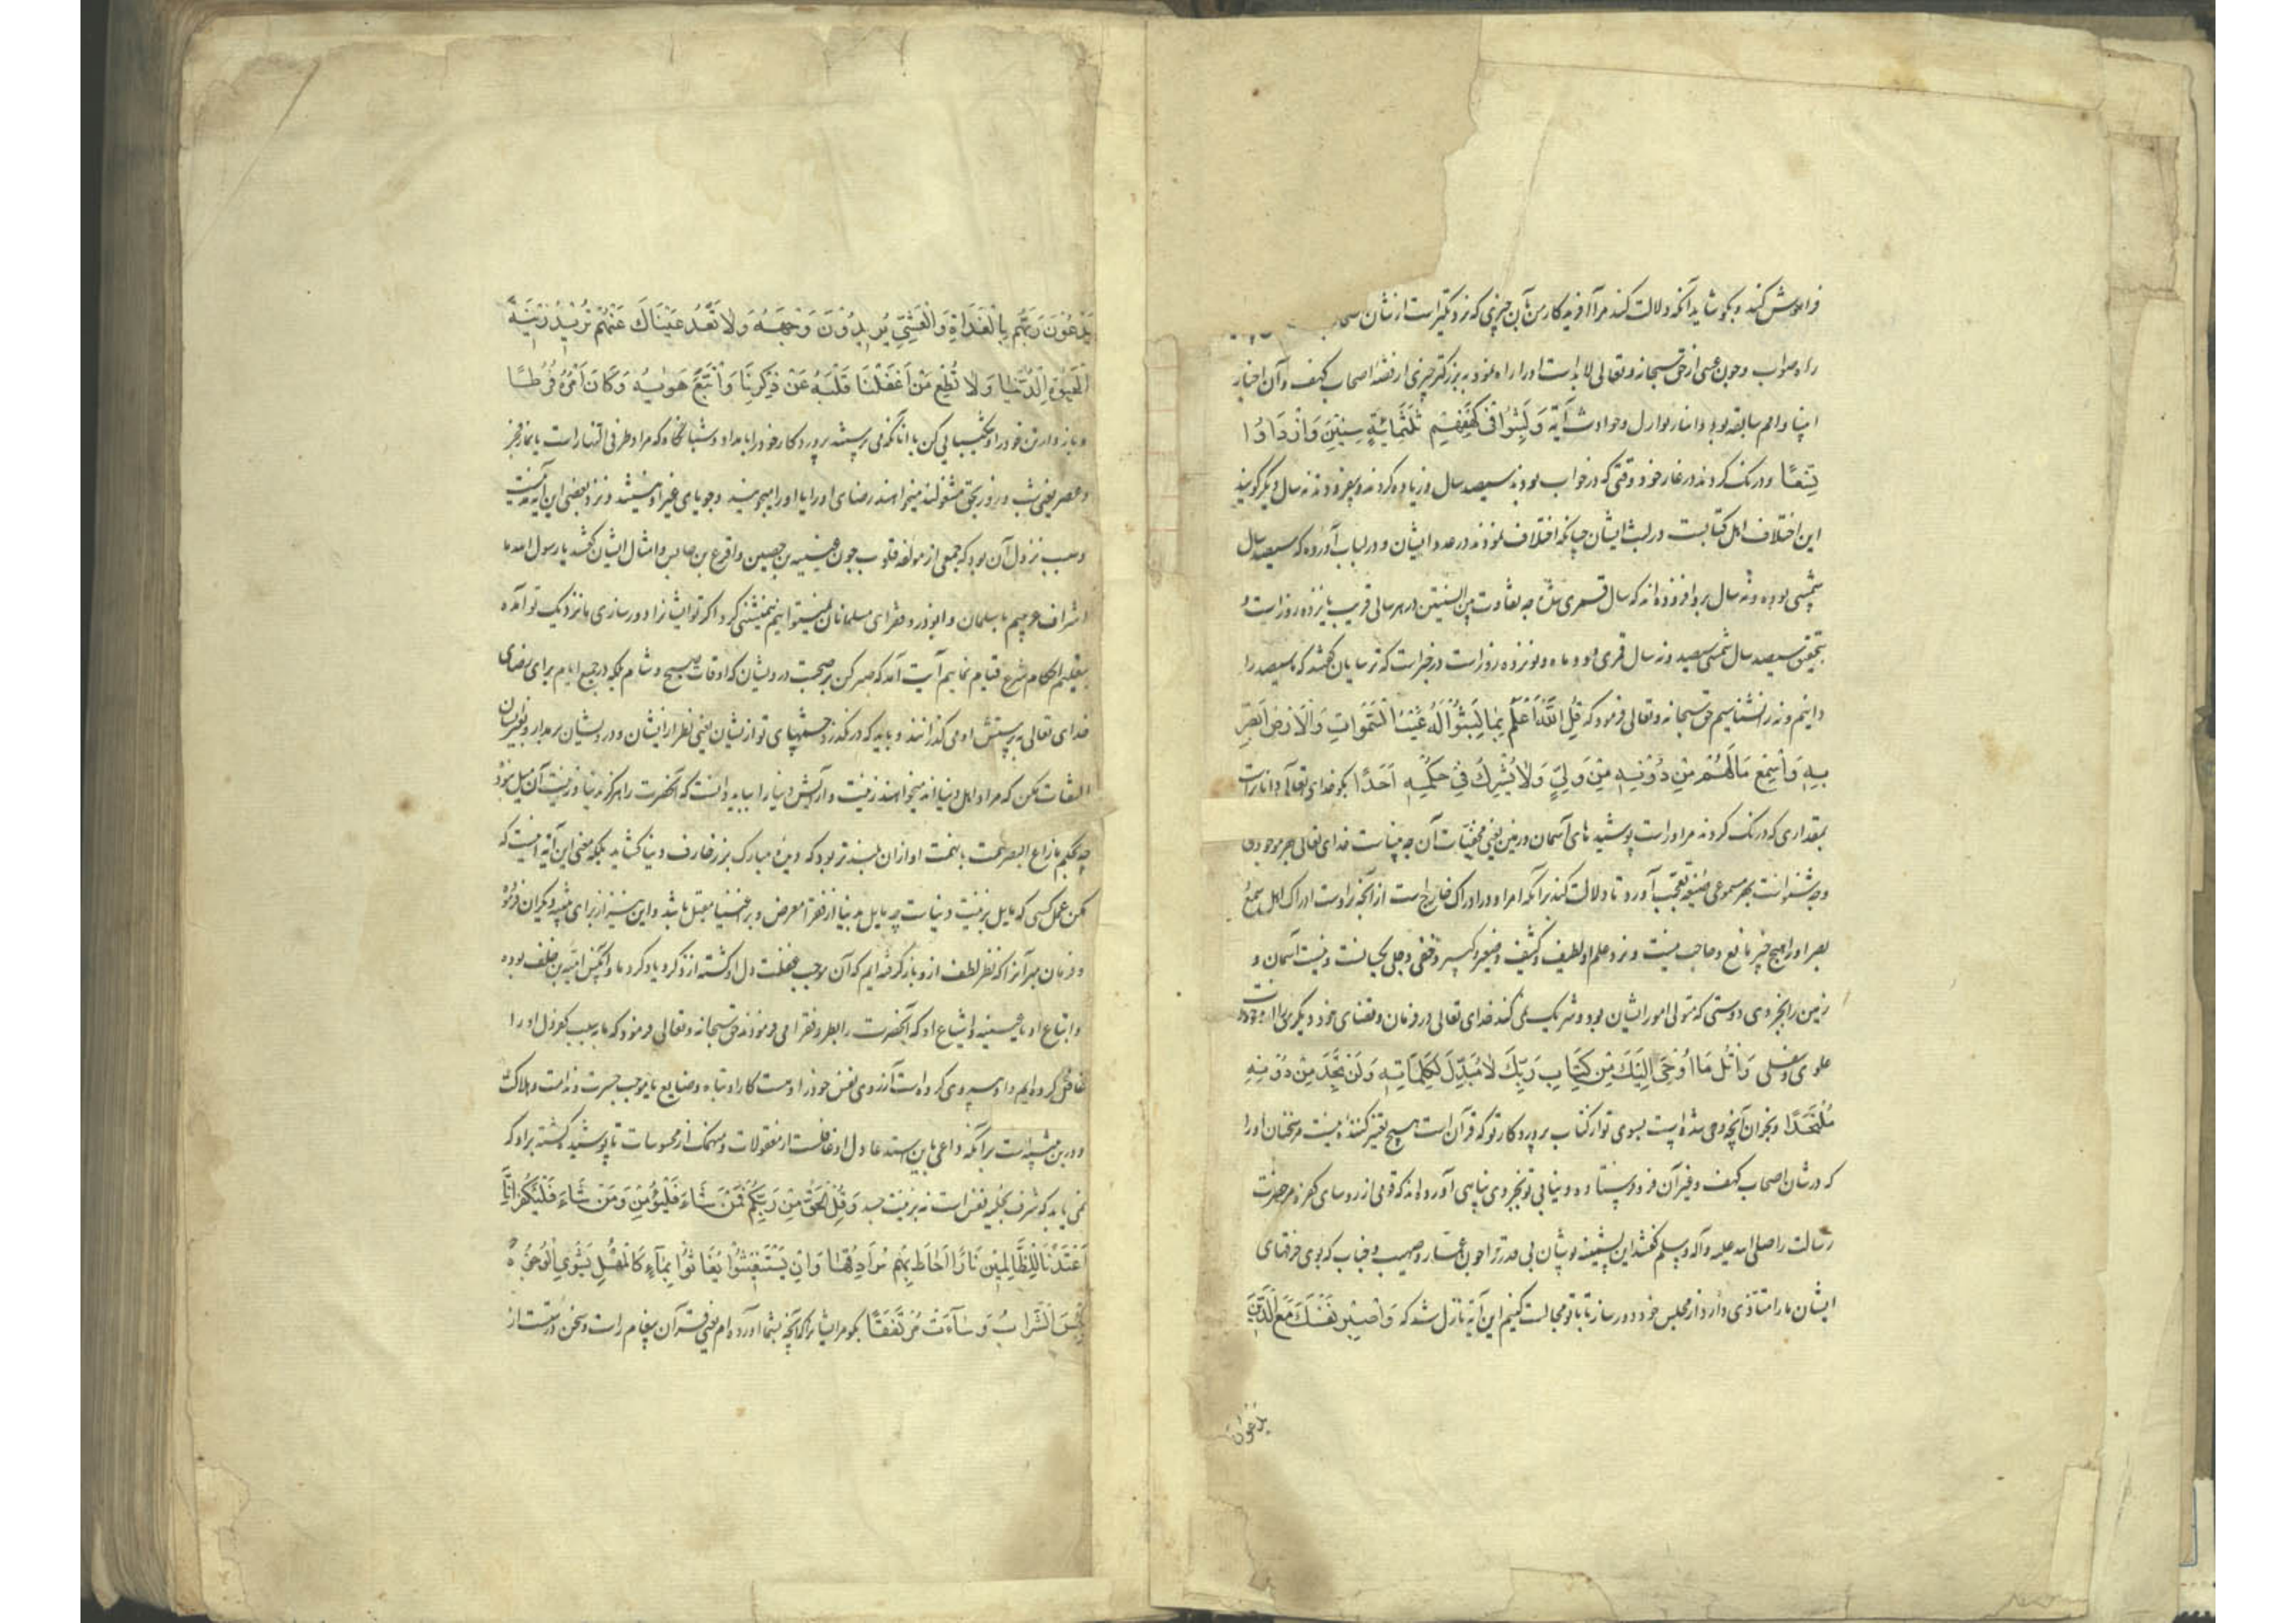 فراموش کند و بگو شاید آنکه دلالت کند مرا آفریدکار من بآن چیزی که نزدیکتر است از نشان
راه صواب و چون عسی از حق سبحانه و تعالی لابد است او را راه نمود به بزرکتر چیزی از قصهٔ اصحاب کهف و آن اخبار
انبیا و امم سابقه بود و انباء نوازل و حوادث آتیه وَلَبِثُوا فِی کَهْفِهِمْ ثَلٰثَمِائَةٍ سِنِینَ وَازْدَادُوا
تِسْعًا و درنک کردند در غار خود وقتی که در خواب بودند سیصد سال و زیاده کردند و بیفزودند نه سال دیکر کویند
این اختلاف اهل کتابست در لبث ایشان چنانکه اختلاف نمودند در عدد ایشان و در لباب آورده که سیصد سال
شمسی بوده و نه سال بدو افزوده اند که سال قمری شد چه تفاوت بین السنتین در هر سالی قریب بیازده روز است و
بتحقیق سیصد سال شمسی سیصد و نه سال قمری و دو ماه و نوزده روز است در خبر است که ترسایان کفتند که ما سیصد را
دانیم و نه را نشناسیم حق سبحانه و تعالی فرمود که قُلِ اللّٰهُ اَعْلَمُ بِمَا لَبِثُوا لَهُ غَیْبُ السَّمٰوَاتِ وَالْاَرْضِ اَبْصِرْ
بِهِ وَاَسْمِعْ مَا لَهُمْ مِنْ دُونِهِ مِنْ وَلِیٍّ وَلَا یُشْرِکُ فِی حُکْمِهِ اَحَدًا بکو خدای تعالی داناتر است
بمقداری که درنک کردند مر او راست پوشیدهای آسمان و زمین یعنی مخفیات آن چه بیناست خدای تعالی بهر موجودی
و چه شنواست بهر مسموعی صیغهٔ تعجب آورد تا دلالت کند بر آنکه امر او در ادراک خارج است از آنچه بر اوست ادراک اهل سمع و
بصر او را هیچ چیز مانع و حاجب نیست و نزد علم او لطیف و کثیف و صغیر و کبیر و خفی و جلی یکسانست و نیست آسمان و
زمین را بجز وی دوستی که متولی امور ایشان بود و شریک نمی کند خدای تعالی در فرمان و قضای خود دیکری را از موجودات
علوی و سفلی وَاتْلُ مَا اُوحِیَ اِلَیْکَ مِنْ کِتَابِ رَبِّکَ لَا مُبَدِّلَ لِکَلِمَاتِهِ وَلَنْ تَجِدَ مِنْ دُونِهِ
مُلْتَحَدًا و بخوان آنچه وحی شده است بسوی تو از کتاب پروردکار تو که قرآن است هیچ تغییر کننده نیست مر سخنان او را
که در شان اصحاب کهف و غیر آن فرو فرستاده و نیابی تو بجز وی پناهی آورده اند که قومی از روسای کفره مر حضرت
رسالت را صلی الله علیه و آله وسلم کفتند این پشمینه پوشان بی قدر را چون عمار و صهیب و خباب که بوی خرقهای
ایشان ما را متاذی دارد از مجلس خود دور ساز تا با تو مجالست کنیم این آیه نازل شد که وَاصْبِرْ نَفْسَکَ مَعَ الَّذِینَ
یدعون
یَدْعُونَ رَبَّهُمْ بِالْغَدَاةِ وَالْعَشِیِّ یُرِیدُونَ وَجْهَهُ وَلَا تَعْدُ عَیْنَاکَ عَنْهُمْ تُرِیدُ زِینَةَ
الْحَیٰوةِ الدُّنْیَا وَلَا تُطِعْ مَنْ اَغْفَلْنَا قَلْبَهُ عَنْ ذِکْرِنَا وَاتَّبَعَ هَوٰیهُ وَکَانَ اَمْرُهُ فُرُطًا
و باز دار تن خود را و شکیبایی کن با آنانکه می پرستند پروردکار خود را بامداد و شبانکاه که مراد طرفی النهار است یا نماز فجر
و عصر یعنی شب و روز بحق مشغولند میخواهند رضای او را یا او را میجویند و جویای غیر او نیستند و نزد بعضی این آیه مدنیست
و سبب نزول آن بود که جمعی از مولفه قلوب چون عیینه بن حصین و اقرع بن حابس و امثال ایشان کفتند یا رسول الله ما
اشراف عربیم با سلمان و ابوذر و فقرای مسلمانان نمیتوانیم همنشینی کرد اکر تو ایشانرا دور سازی ما نزدیک تو آمده
بتعلیم احکام شرع قیام نماییم آیت آمد که صبر کن بر صحبت درویشان که اوقات صبح و شام بلکه در جمیع ایام برای رضای
خدای تعالی به پرستش او می کذرانند و باید که در نکذرد چشمهای تو از ایشان یعنی نظر از ایشان و درویشان بر مدار و بغیر ایشان
التفات مکن که مراد اهل دنیا اند میخواهند زینت و آرایش دنیا را بباید دانست که آنحضرت را هرکز بدنیا و زینت آن میل نبود
چه بحکم مازاغ البصر همت او از آن بلندتر بود که دیدهٔ مبارک بزخارف دنیا کشاید بلکه معنی این آیه اینست که
مکن عمل کسی که مایل بزینت دنیاست چه مایل بدنیا از فقرا معرض و بر اغنیا مقبل باشد و این نیز از برای تنبیه دیکران فرمود
و فرمان مبر آنرا که نظر لطف از و باز کرفته ایم که آن موجب غفلت دل او کشته از ذکر و یاد کرد ما و آنکس امیه بن خلف بوده
و اتباع او یا عیینه و اشیاع او که آنحضرت را بطرد فقرا می فرمودند حق سبحانه و تعالی فرمود که ما به سبب کفر دل او را
غافل کرده ایم و او پیروی کرده است آرزوی نفس خود را و هست کار او تباه و ضایع یا موجب حسرت و ندامت و هلاکت
و درین تنبیه است بر آنکه داعی باین استدعا دل او غافلست از معقولات و منهمک از محسوسات تا پوشیده کشته بر او که
نمی یابد که شرف بحلیهٔ نفس است نه بزینت جسد وَقُلِ الْحَقُّ مِنْ رَبِّکُمْ فَمَنْ شَاءَ فَلْیُؤْمِنْ وَمَنْ شَاءَ فَلْیَکْفُرْ اِنَّا
اَعْتَدْنَا لِلظَّالِمِینَ نَارًا اَحَاطَ بِهِمْ سُرَادِقُهَا وَاِنْ یَسْتَغِیثُوا یُغَاثُوا بِمَآءٍ کَالْمُهْلِ یَشْوِی الْوُجُوهَ
بِئْسَ الشَّرَابُ وَسَآءَتْ مُرْتَفَقًا بکو مر ایشانرا که آنچه بشما آورده ام یعنی قرآن پیغام راست و سخن درستست از